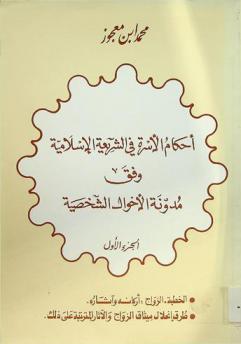 محمد ابن معجوز
أحكام الأسرة في الشريعة الإسلامية
وفق
مدونة الأحوال الشخصية
الجزء الأول
الخطبة، الزواج، أركانه وآثاره.
طرق انحلال ميثاق الزواج والآثار المترتبة على ذلك.